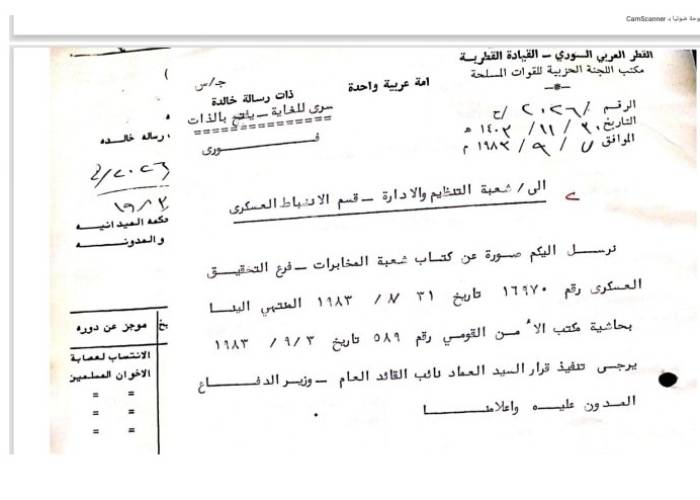 وحة ضوئيا بـ CamScanner
القطر العربي السوري ــ القيادة القطرية
مكتب اللجنة الحزبية للقوات المسلحة
الرقم / ٢٠٢٦ / ح
التاريخ ٣٠ / ١١ / ١٤٠٣ هـ
الموافق ٧ / ٩ / ١٩٨٣ م
امة عربية واحدة
ذات رسالة خالدة
ج/س
سرى للغاية ــ يفتح بالذات
فورى
الى / شعبة التنظيم والادارة ــ قسم الانضباط العسكرى
نرسل اليكم صورة عن كتاب شعبة المخابرات ــ فرع التحقيق
العسكرى رقم ١٦٩٧٠ تاريخ ٣١ /٨/ ١٩٨٣ المنتهي الينا
بحاشية مكتب الأمن القومي رقم ٥٨٩ تاريخ ٣/٩/ ١٩٨٣
يرجى تنفيذ قرار السيد العماد نائب القائد العام ــ وزير الدفاع
المدون عليه واعلامنا
رسالة خالده
٢٠٢٦/
١٩٨٣
كمه الميدانيه
والمدونه
يخ
موجز عن دوره
الانتساب لعصابة
الاخوان المسلمين
= =
= =
= =